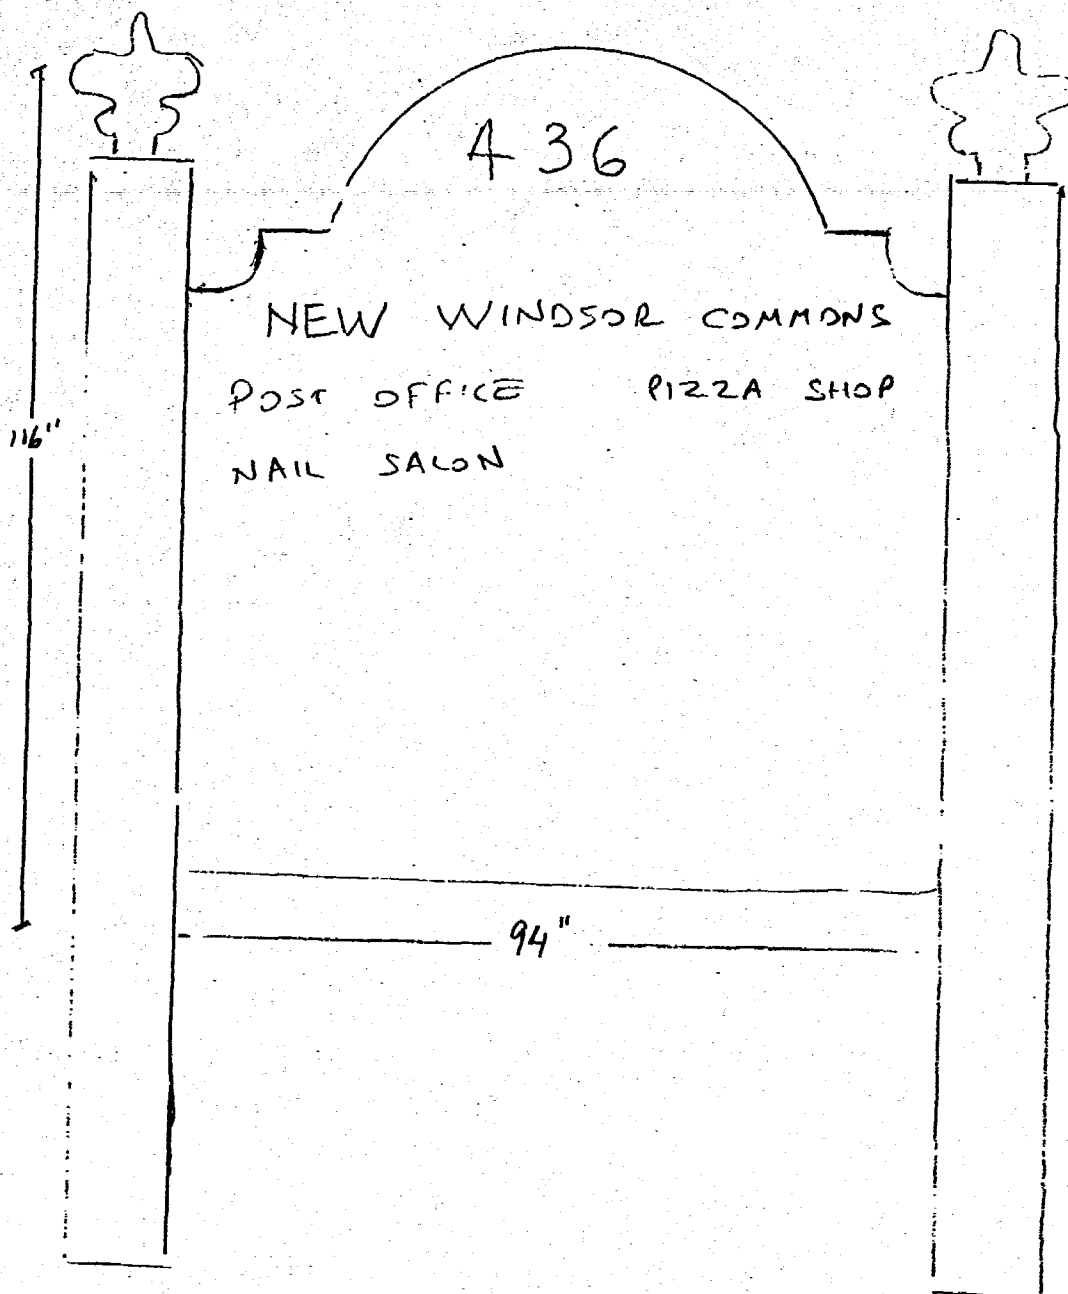 436
NEW WINDSOR COMMONS
POST OFFICE PIZZA SHOP
NAIL SALON
116"
94"